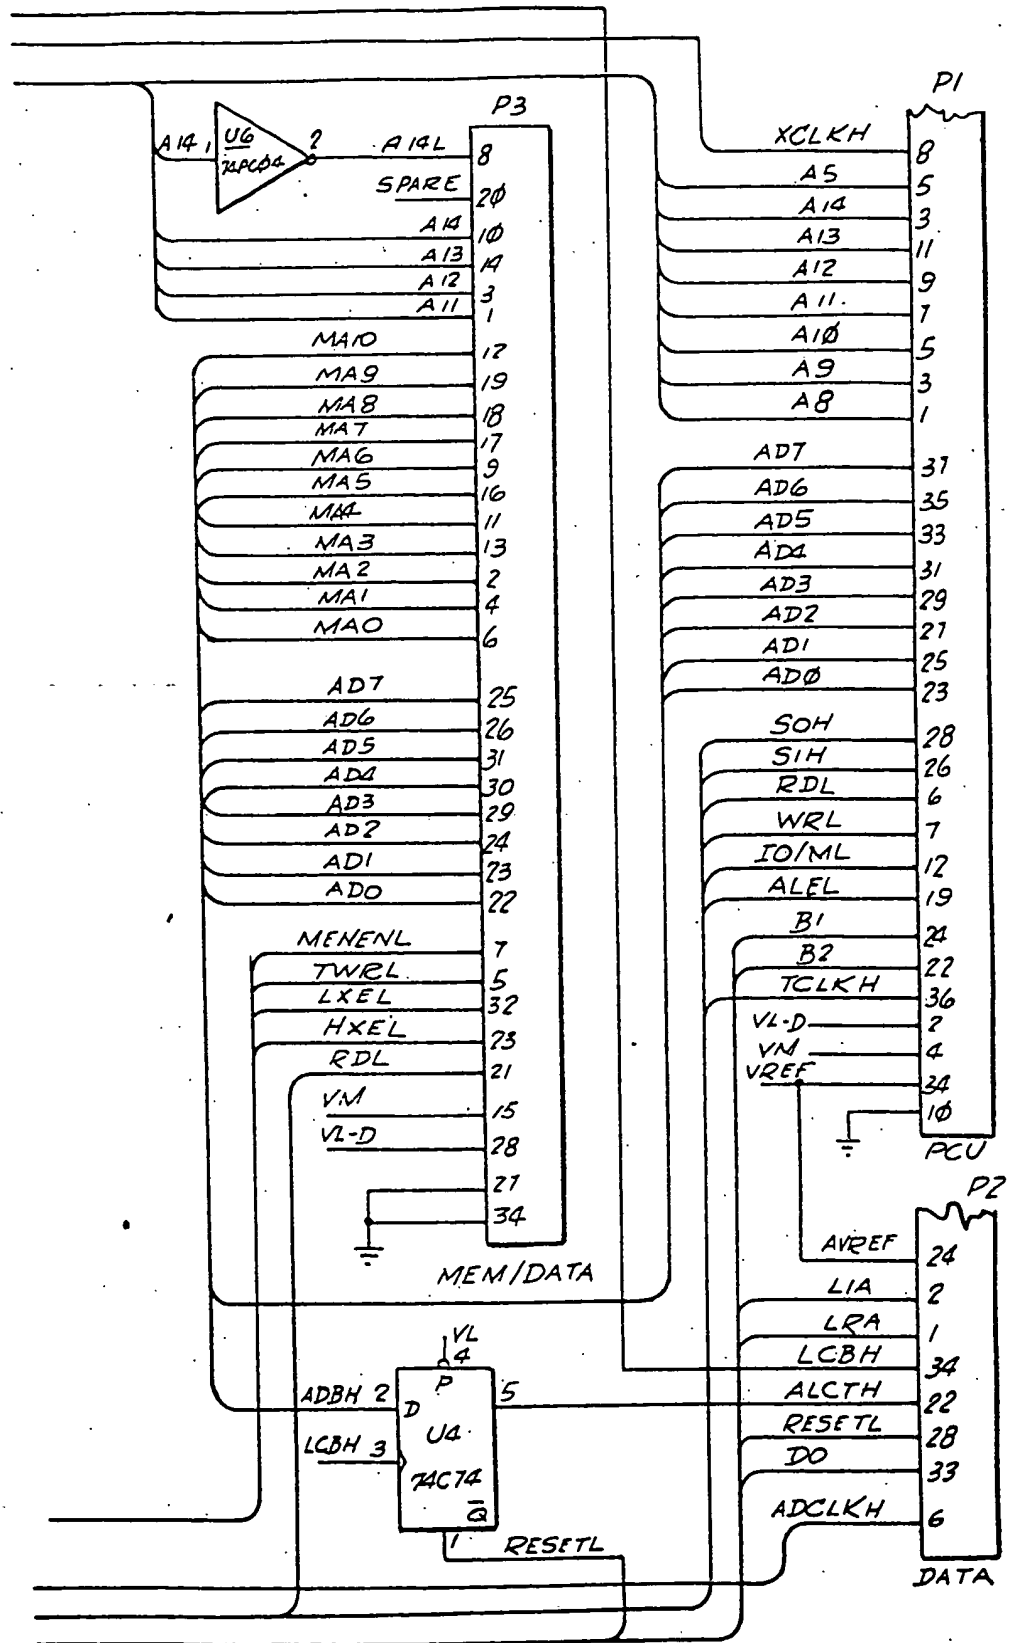 P1
P3
A14 1
U6
74PC04
2
A14L
8
SPARE
2Ø
A14
1Ø
A13
14
A12
3
A11
1
MA10
12
MA9
19
MA8
18
MA7
17
MA6
9
MA5
16
MA4
11
MA3
13
MA2
2
MA1
4
MA0
6
AD7
25
AD6
26
AD5
31
AD4
30
AD3
29
AD2
24
AD1
23
AD0
22
MENENL
7
TWRL
5
LXEL
32
HXEL
23
RDL
21
VM
15
VL-D
28
27
34
MEM/DATA
XCLKH
8
A5
5
A14
3
A13
11
A12
9
A11.
7
A1Ø
5
A9
3
A8
1
AD7
37
AD6
35
AD5
33
AD4
31
AD3
29
AD2
27
AD1
25
ADØ
23
SOH
28
S1H
26
RDL
6
WRL
7
IO/ML
12
ALEL
19
B1
24
B2
22
TCLKH
36
VL-D
2
VM
4
VREF
34
1Ø
PCU
P2
AVREF
24
LIA
2
LRA
1
LCBH
34
ALCTH
22
RESETL
28
DO
33
ADCLKH
6
DATA
VL
4
P
ADBH 2
D
5
U4
LCBH 3
74C74
Q̅
1
RESETL